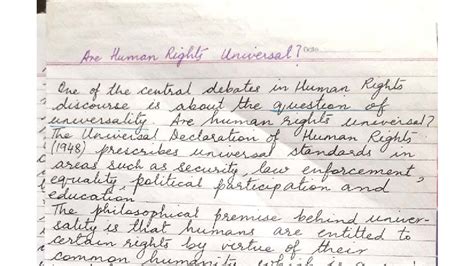 Date
Are Human Rights Universal?
One of the central debates in Human Rights
discourse is about the question of
universality. Are human rights universal?
The Universal Declaration of Human Rights
(1948) prescribes universal standards in
areas such as security, law enforcement,
equality, political participation and
education.
The philosophical premise behind univer-
sality is that humans are entitled to
certain rights by virtue of their
common humanity, which is